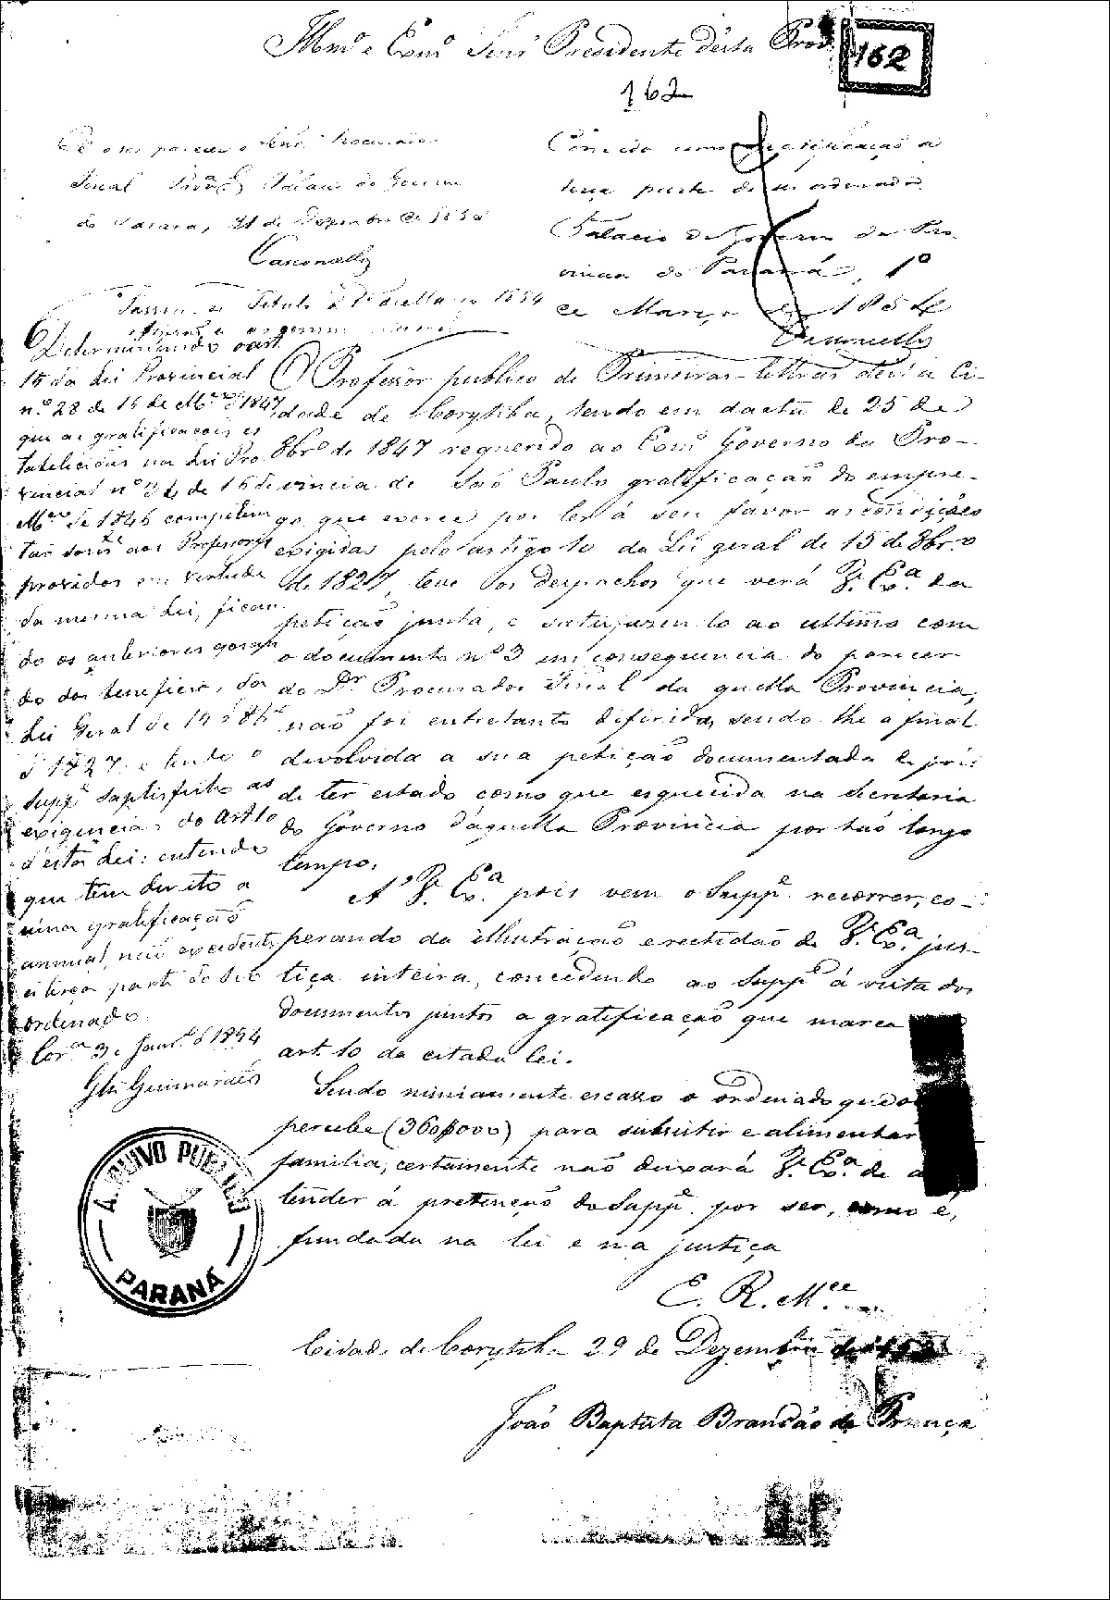 Illmo e Exmo Senr Presidente desta Prova
162
162
Dê o seu parecer o Senr Procurador
Fiscal Palacio do Governo
do Paraná, 31 de Dezembro de 1853
Vasconcellos
Concedo uma gratificação a
terça parte do seu ordenado.
Palacio do Governo da Pro-
vincia do Paraná, 1º
de Março de 1854
Vasconcellos
Passou-se Titulo 1854
Determinando o art.
15 da Lei Provincial
nº 28 de 16 de Mço de 1847
que as gratificacois es
tabelicidas na Lei Pro
vincial nº 34 de 16 de
Mço de 1846 competem
tão somte aos Professores
providos em vertude
da mesma Lei, fican
do os anteriores gosan
do dos beneficios da
Lei Geral de 15 8bro
d'1827 e tendo o
Suppe saptisfeito as
exigencias do Art 10
d'esta Lei: entendo
que tem direito a
uma gratificação
annual, não excedente
á terça parte do seu
ordenado.
Cora 3 de Janro d'1854
Guimaraes
O Professor publico de Primeiras lettras desta Ci-
dade de Corytiba, tendo em dacta de 25 de
8bro de 1847 requerido ao Exmo Governo da Pro-
vincia de São Paulo gratificação do empre-
go que exerce por ter á seu favor as condições
exigidas pelo artigo 10 da Lei geral de 15 de 8bro
de 1827, teve os despachos que verá V. Exa da
petição junta, e satisfazendo ao ultimo com
o documento nº 3 em consequencia do parecer
do Dr Procurador Fiscal da quella Provincia,
não foi entretanto diferida, sendo-lhe a final
devolvida a sua petição documentada depois
de ter estado como que esquecida na Secretaria
do Governo d'aquella Provincia por tão longo
tempo.
A' V. Exa pois vem o Suppe recorrer, es-
perando da illustração e rectidão de V. Exa jus-
tiça inteira, concedendo ao Suppe á vista dos
documentos juntos a gratificação que marca
art. 10 da citada lei.
Sendo nimiamente escasso o ordenado que o
percebe (360$000) para subsistir e alimentar
familia, certamente não deixará V. Exa de a
tender á pretenção do Suppe por ser, como é,
fundada na lei e na justiça
E. R. Mce
Cidade de Corytiba 29 de Dezembro de 1853
João Baptista Brandão de Proença
ARQUIVO PUBLICO
PARANÁ